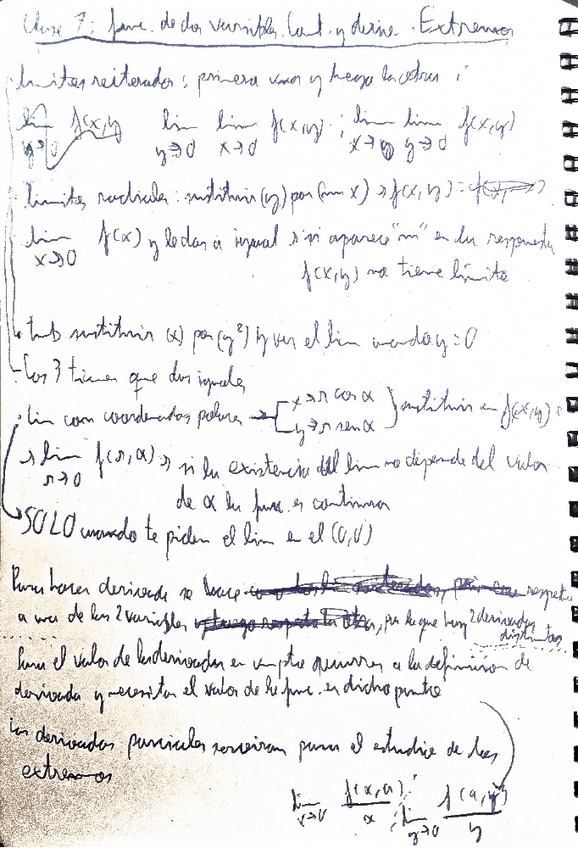 Clase 7: func. de dos variables. Cont. y deriv. Extremos
limites reiterados: primera una y luego la otra:
lim f(x,y) lim lim f(x,y) ; lim lim f(x,y)
y→0 y→0 x→0 x→0 y→0
limites radiales: sustituir (y) por (mx) → f(x,y) =
lim f(x) y le das a igual → si aparece "m" en la respuesta
x→0 f(x,y) no tiene límite
tmb sustituir (x) por (y²) y ver el lim cuando y=0
Los 3 tienen que dar iguales
lim com coordenadas polares → x→r cos α sustituir en f(x,y)
y→r sen α
→ lim f(r,α) → si la existencia del lim no depende del valor
r→0 de α la func. es continua
SOLO cuando te piden el lim en el (0,0)
Para hacer derivada se hace respecto
a una de las 2 variables, por lo que hay 2 derivadas
distintas
Para el valor de las derivadas en un ptro recurres a la definicion de
derivada y necesitas el valor de la func. en dicho punto
Las derivadas parciales serviran para el estudio de los
extremos
lim f(x,0) ; lim f(0,y)
x→0 x y→0 y